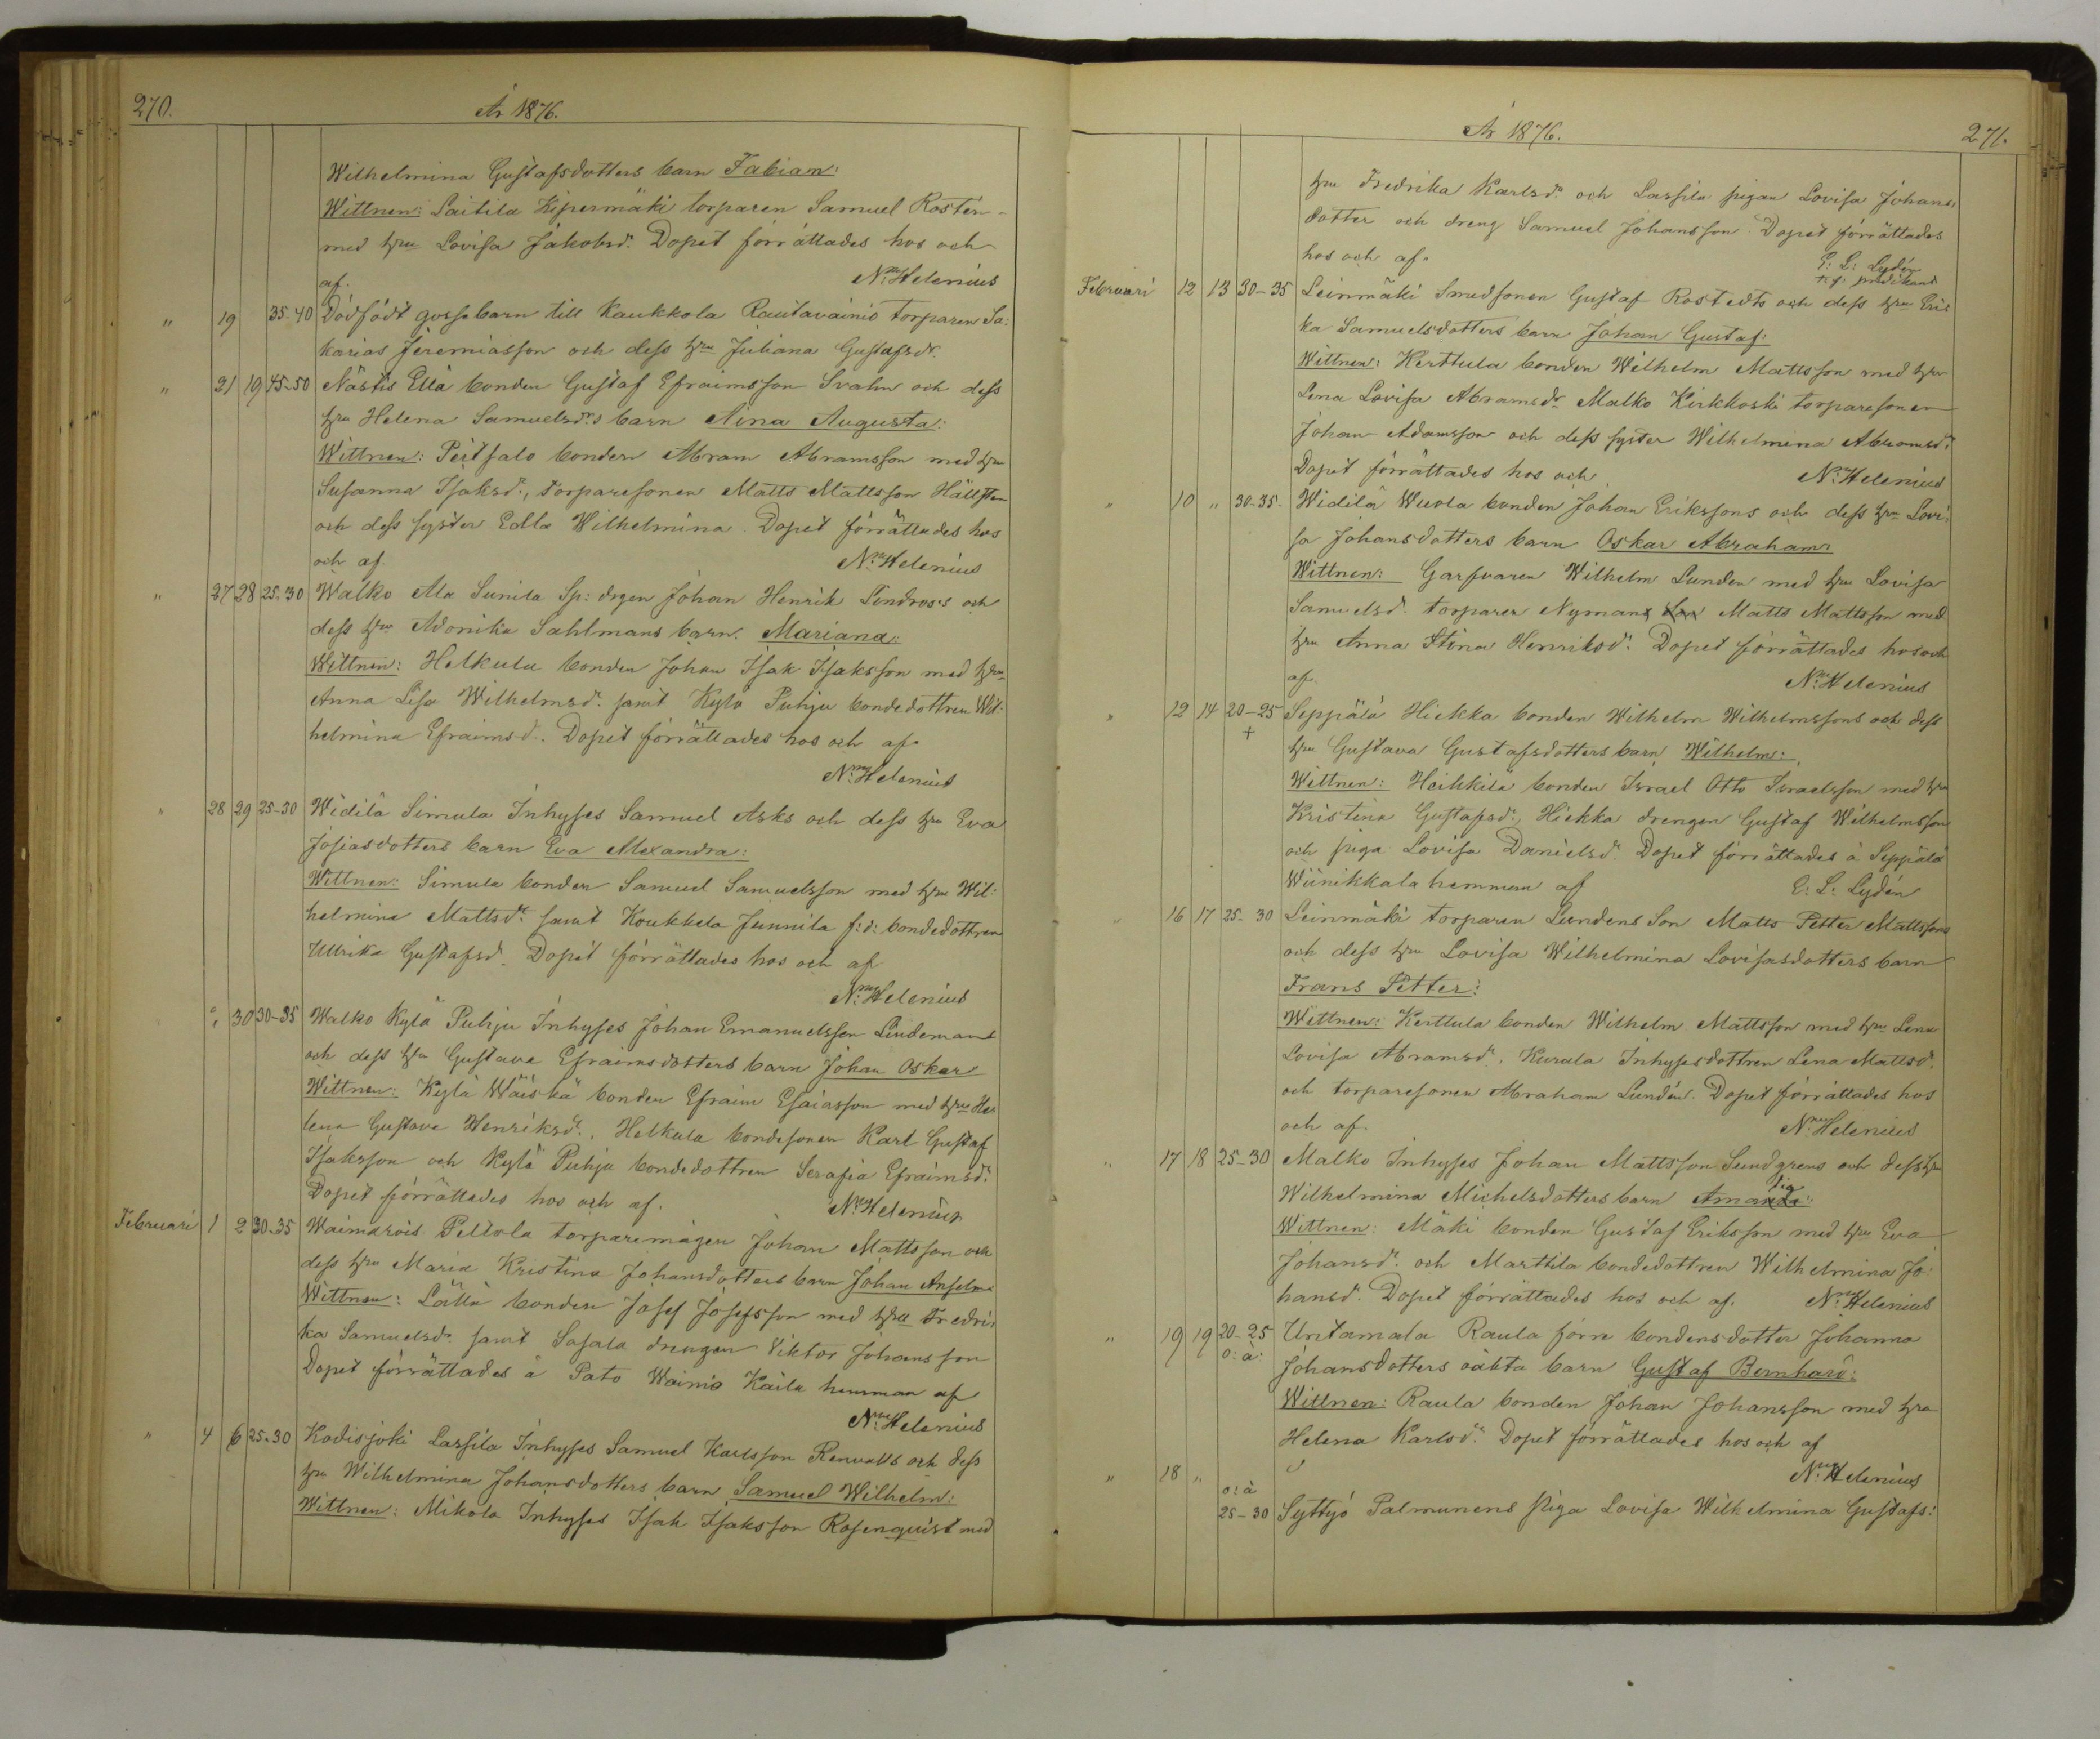 270.
År 1876.
Wilhelmina Gustafsdotters barn Fabian:
Wittnen: Laitila Kipermäki torparen Samuel Rostén
med hru Lovisa Jakobsdr. Dopet förrättades hos och
af. Nm Helenius
" 19 35-40 Dödfödt gossebarn till Kaukkola Rautavainio torparen Sa:
karias Jeremiasson och dess hru Juliana Gustafsdr.
" 21 19 45-50 Nästis Ellä bonden Gustaf Efraimsson Svahn och dess
hru Helena Samuelsdr:s barn Aina Augusta:
Wittnen: Peitsalo bonden Abram Abramsson med hru
Susanna Isaksdr., torparesonen Matts Mattsson Hällsten
och dess syster Edla Wilhelmina. Dopet förrättades hos
och af. Nm Helenius
" 27 28 25-30 Walko Ala Sunila Sp: drgen Johan Henrik Lindroos's och
dess hru Adonika Sahlmans barn. Mariana:
Wittnen: Helkula bonden Johan Isak Isaksson med hru
Anna Lisa Wilhelmsdr. samt Kylä Puhju bondedottren Wil:
helmina Efraimsdr. Dopet förrättades hos och af.
Nm Helenius
" 28 29 25-30 Widilä Simula Inhyses Samuel Asks och dess hru Eva
Josiasdotters barn Eva Alexandra:
Wittnen: Simula bonden Samuel Samuelsson med hru Wil:
helmina Mattsdr. samt Koukkela Junnila f:d: bondedottren
Ullrika Gustafsdr. Dopet förrättades hos och af
Nm Helenius
" " 30 30-35 Walko Kylä Puhju Inhyses Johan Emanuelsson Lindemans
och dess hru Gustava Efraimsdotters barn Johan Oskar:
Wittnen: Kylä Wäiskä bonden Efraim Esaiasson med hru He:
lena Gustava Henriksdr., Helkula bondesonen Karl Gustaf
Isaksson och Kylä Puhju bondedottren Serafia Efraimsdr.
Dopet förrättades hos och af. Nm Helenius
Februari 1 2 30-35 Waimarois Peltola torparemågen Johan Mattsson och
dess hru Maria Kristina Johansdotters barn Johan Anselm:
Wittnen: Lättä bonden Josef Josefsson med hru Fredri:
ka Samuelsdr. samt Sasala drengen Viktor Johansson
Dopet förrättades å Pato Wainio Kaila hemman af
Nm Helenius
" 4 6 25-30 Kodisjoki Lassila Inhyses Samuel Karlsson Renvalls och dess
hru Wilhelmina Johansdotters barn Samuel Wilhelm:
Wittnen: Mikola Inhyses Isak Isaksson Rosenquist med
År 1876.
271.
hru Fredrika Karlsdr. och Lassila pigan Lovisa Johans:
dotter och dreng Samuel Johansson. Dopet förrättades
hos och af. E: L: Lydén
n.g. predikant
Februari 12 13 30-35 Leinmäki Smedsonen Gustaf Rostedts och dess hru Eri:
ka Samuelsdotters barn Johan Gustaf:
Wittnen: Kerttula bonden Wilhelm Mattsson med hru
Lena Lovisa Abramsdr. Malko Kirkkoski torparesonen
Johan Adamsson och dess syster Wilhelmina Abramsdr:
Dopet förrättades hos och Nm Helenius
" 10 " 30-35 Widilä Wuola bonden Johan Erikssons och dess hru Lovi:
sa Johansdotters barn Oskar Abraham:
Wittnen: Garfvaren Wilhelm Lunden med hru Lovisa
Samuelsdr. torparen Nyman Matts Mattsson med
hru Anna Stina Henriksdr. Dopet förrättades hos och
af. Nm Helenius
" 12 14 20-25 Seppälä Hiekka bonden Wilhelm Wilhelmssons och dess
+ hru Gustava Gustafsdotters barn, Wilhelm:
Wittnen: Heikkilä bonden Israel Otto Israelsson med hru
Kristina Gustafsdr., Hiekka drengen Gustaf Wilhelmsson
och piga Lovisa Danielsdr. Dopet förrättades å Seppälä
Wiinikkala hemman af E: L: Lydén
" 16 17 25-30 Leinmäki torparen Lundens Son Matts Petter Mattssons
och dess hru Lovisa Wilhelmina Lovisasdotters barn
Frans Petter:
Wittnen: Kerttula bonden Wilhelm Mattsson med hru Lena
Lovisa Abramsdr., Kurala Inhysesdottren Lena Mattsdr.
och torparesonen Abraham Lundén. Dopet förrättades hos
och af. Nm Helenius
" 17 18 25-30 Malko Inhyses Johan Mattsson Sundgrens och dess hru
Wilhelmina Michelsdotters barn Amalia:
Wittnen: Mäki bonden Gustaf Eriksson med hru Eva
Johansdr. och Marttila bondedottren Wilhelmina Jo:
hansdr. Dopet förrättades hos och af. Nm Helenius
" 19 19 20-25 Untamala Raula förre bondensdotter Johanna
o: ä: Johansdotters oäkta barn Gustaf Bernhard:
Wittnen: Raula bonden Johan Johansson med hru
Helena Karlsdr. Dopet förrättades hos och af
Nm Helenius
" 18 " o: ä
25-30 Syttyö Palmunens Piga Lovisa Wilhelmina Gustafs: